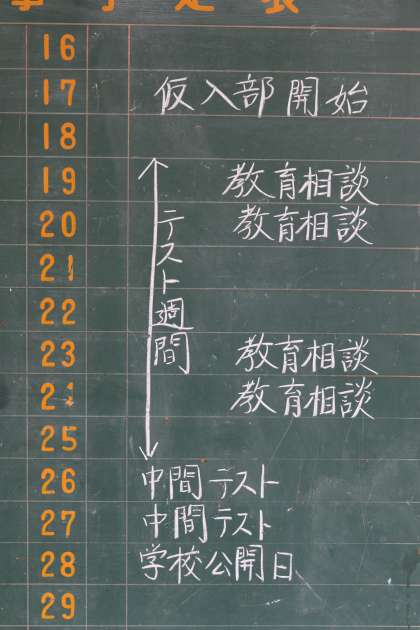 行事予定表
16
17 仮入部開始
18
19 教育相談
20 教育相談
21
22
23 教育相談
24 教育相談
25
テスト週間
26 中間テスト
27 中間テスト
28 学校公開日
29